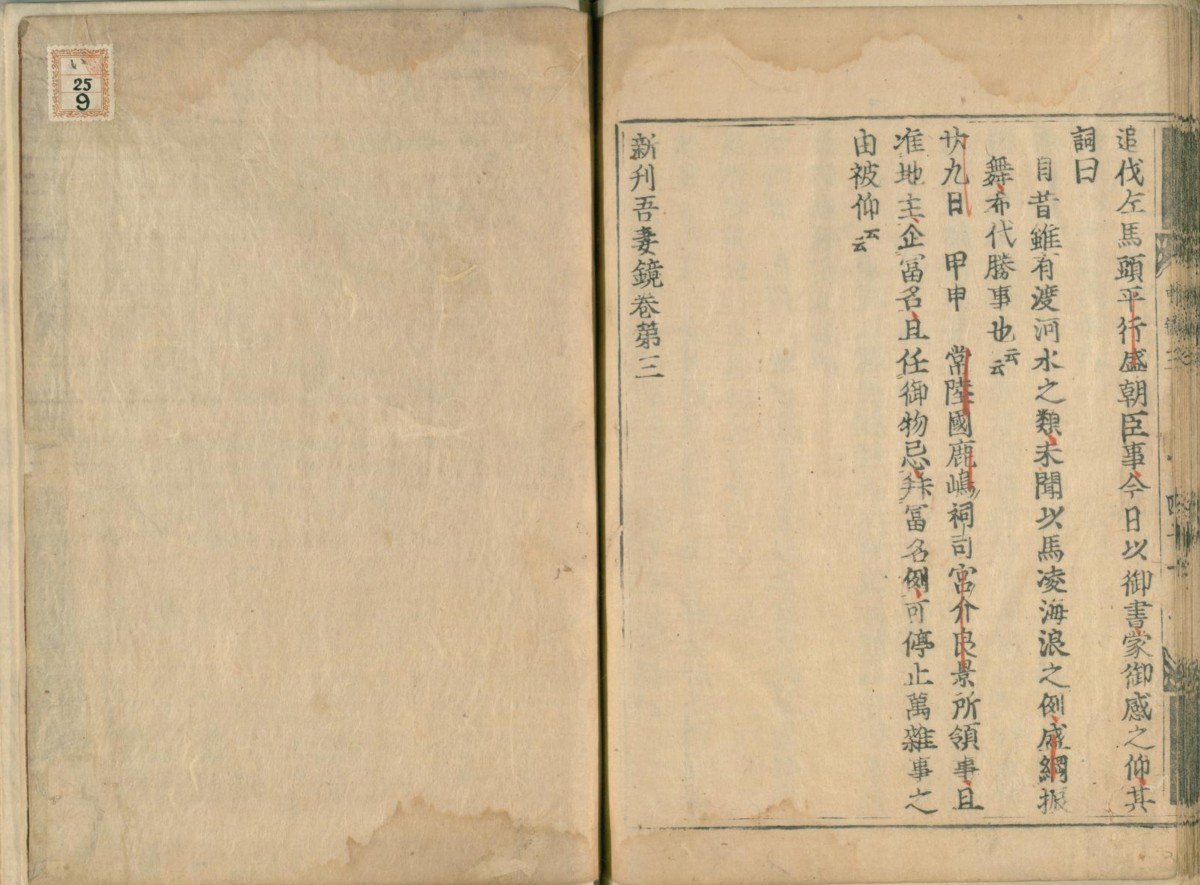 追伐左馬頭平行盛朝臣事今日以御書蒙御感之仰其
詞曰
自昔雖有渡河水之類未聞以馬凌海浪之例盛綱振
舞希代勝事也云云
廿九日 甲申 常陸國鹿嶋祠司宮介良景所領事且
准地主企冨名且任御物忌并冨名例可停止萬雜事之
由被仰云云
新刊吾妻鏡卷第三
い
25
9